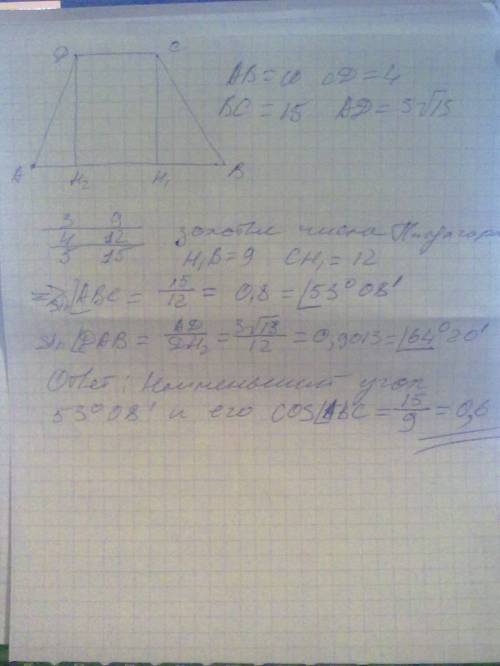 D C
A H₂ H₁ B
AB = 10 CD = 4
BC = 15 AD = 3√13
3 9
4 12
5 15
золотые числа Пифагора
H₁B = 9 CH₁ = 12
=> Sin∠ABC = 15/12 = 0,8 = ∠53°08'
Sin∠DAB = AD/DH₂ = 3√13/12 = 0,9013 = ∠64°20'
Ответ: Наименьший угол
53°08' и его COS∠ABC = 15/9 = 0,6